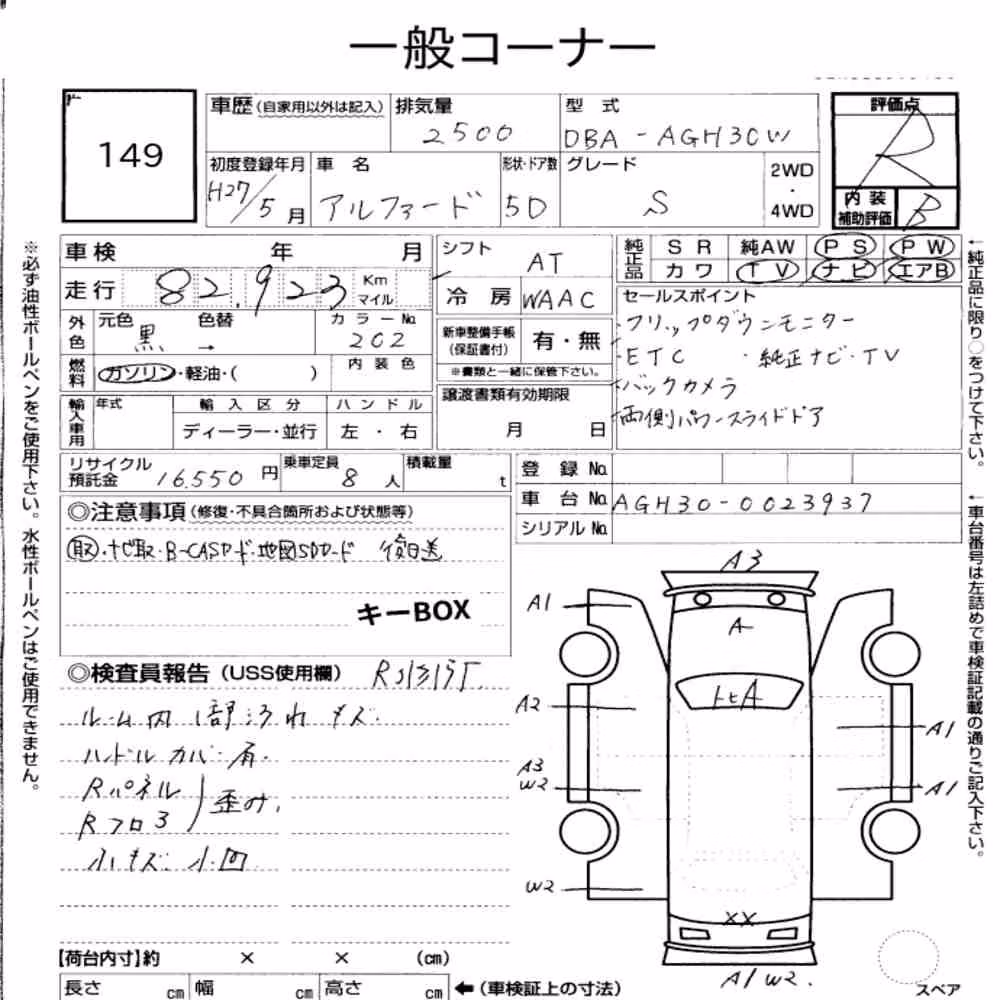 一般コーナー
149
車歴(自家用以外は記入)
排気量
2500
型式
DBA-AGH30W
評価点
R
初度登録年月
H27/5月
車名
アルファード
形状・ドア数
5D
グレード
S
2WD
・
4WD
内装
補助評価
B
車検 年 月
シフト
AT
純正品
SR 純AW PS PW
カワ TV ナビ エアB
走行
82,923
Km
マイル
冷房
WAAC
セールスポイント
・フリップダウンモニター
・ETC ・純正ナビ・TV
・バックカメラ
・両側パワースライドドア
外色
元色
黒
色替
→
カラーNo.
202
新車整備手帳
(保証書付)
有・無
※書類と一緒に保管下さい。
燃料
ガソリン・軽油・( )
内装色
譲渡書類有効期限
月 日
輸入車用
年式
輸入区分
ディーラー・並行
ハンドル
左・右
リサイクル
預託金
16.550円
乗車定員
8人
積載量
t
登録No.
車台No.
AGH30-0023937
シリアルNo.
◎注意事項(修復・不具合箇所および状態等)
取・ナビ取・B-CASカード・地図SDカード 後日送
キーBOX
◎検査員報告(USS使用欄)
ルーム内1部汚れキズ
ハンドルカバー有.
Rパネル
Rフロ3
歪み.
小キズ. 小凹
A3
A1
A
トビA
A2
A1
A3
W2
A1
W2
XX
A1 W2
スペア
【荷台内寸】約 × × (cm)
長さ cm 幅 cm 高さ cm ←(車検証上の寸法)
※必ず油性ボールペンをご使用下さい。水性ボールペンはご使用できません。
←純正品に限り○をつけて下さい。
←車台番号は左詰めで車検証記載の通りご記入下さい。